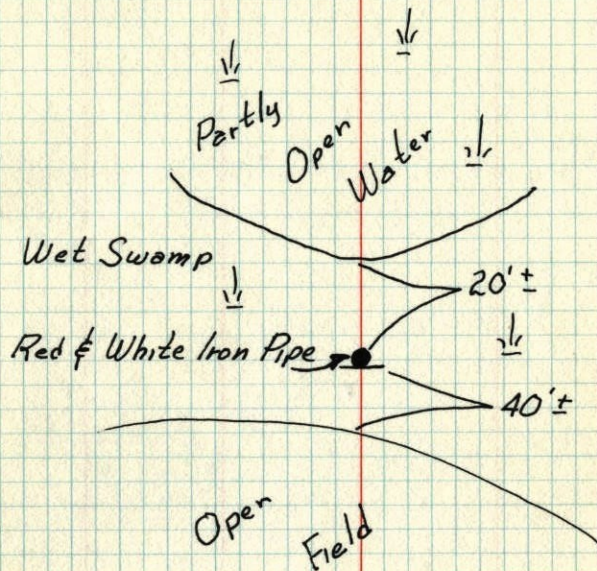 Partly
Open
Water
Wet Swamp
20'±
Red & White Iron Pipe
40'±
Open
Field